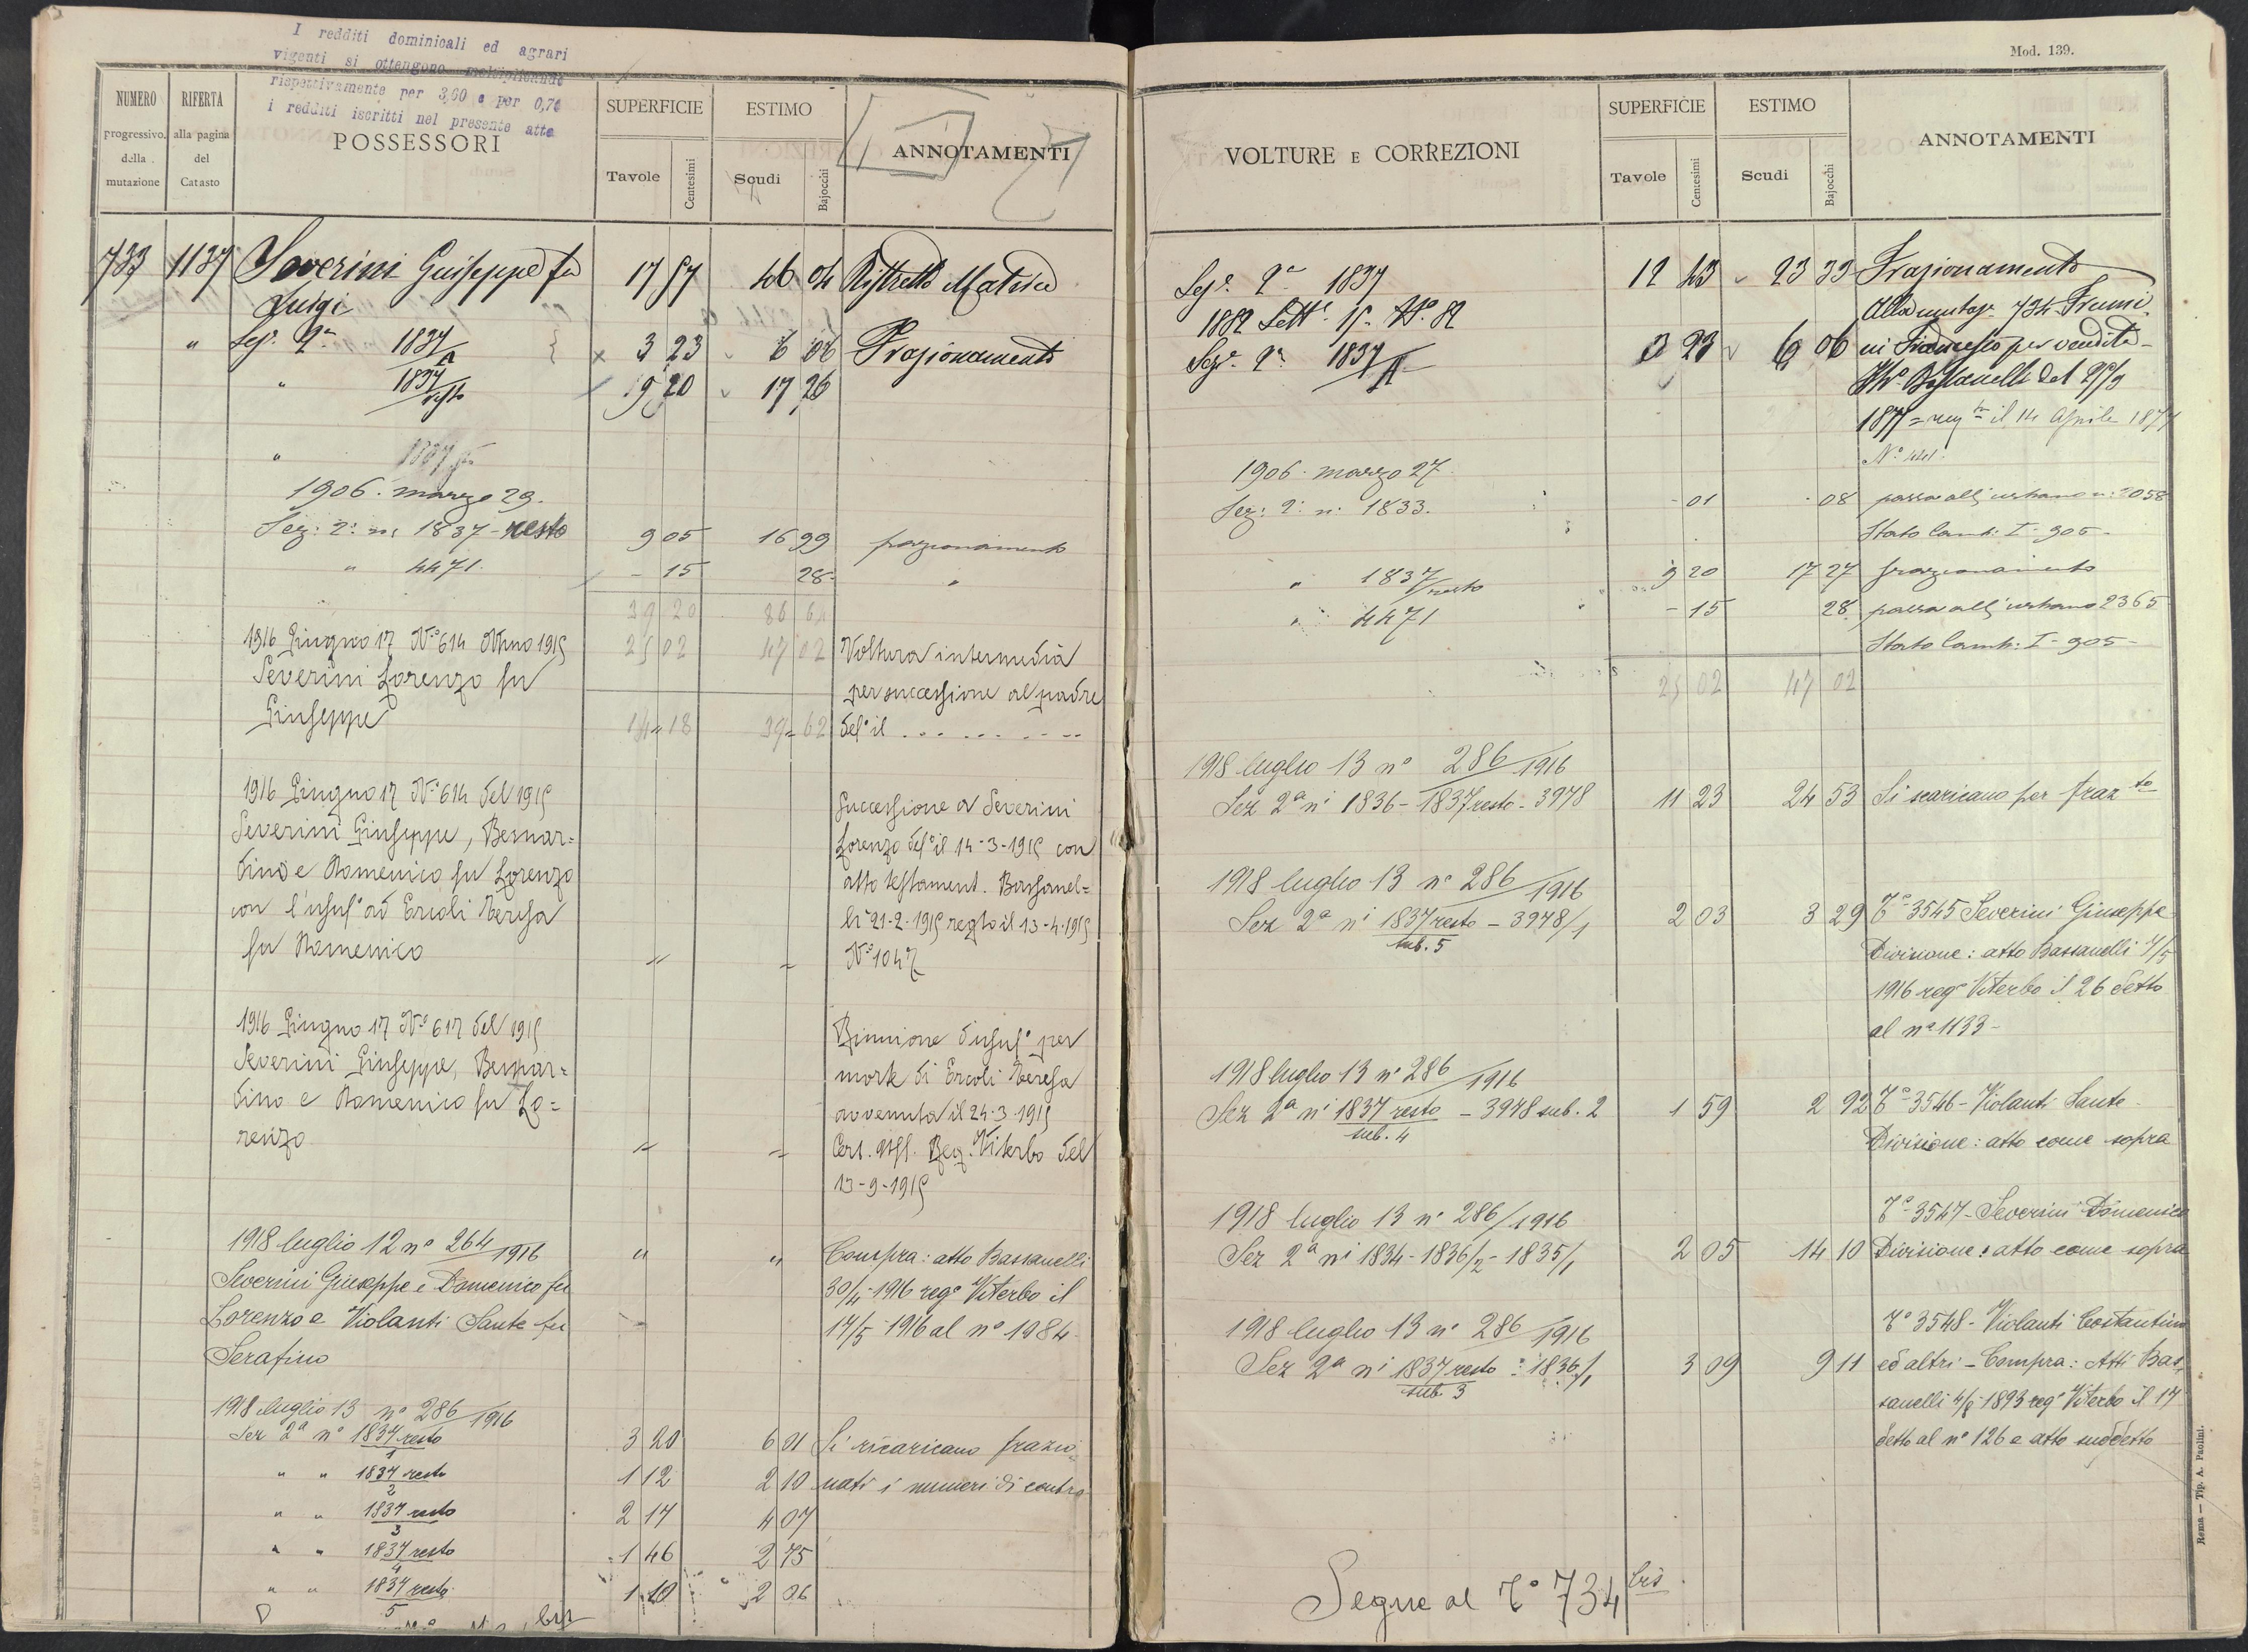 I redditi dominicali ed agrari
vigenti si ottengono moltiplicando
rispettivamente per 3,60 e per 0,70
i redditi iscritti nel presente atto
NUMERO progressivo della mutazione
RIFERTA alla pagina del Catasto
POSSESSORI
SUPERFICIE
Tavole Centesimi
ESTIMO
Scudi Bajocchi
ANNOTAMENTI
733 1137 Severini Giuseppe fu 17 57 46 04 Ristretto Matrice
Luigi
" Sez. 2a 1837/A 3 23 6 06 Frazionamento
" 1837/resto 9 20 17 26
"
1906. marzo 29.
Sez: 2: n: 1837 - resto 9 05 16 99 frazionamento
" 4471 - 15 28 "
39 20 86 64
1916 Giugno 17 No 614 Anno 1915 25 02 47 02 Voltura intermedia
Severini Lorenzo fu per successione al padre
Giuseppe 14 18 39 62 def° il . . . . . . . .
1916 Giugno 17 No 614 del 1915
Severini Giuseppe, Bernar=
dino e Domenico fu Lorenzo
con l'usuf° ad Ercoli Teresa
fu Domenico " "
Successione a Severini
Lorenzo def° il 14-3-1915 con
atto testament. Bassanel=
li 21-2-1915 regto il 13-4-1915
No 1047
1916 Giugno 17 No 617 del 1915
Severini Giuseppe, Bernar=
dino e Domenico fu Lo=
renzo " "
Riunione d'usuf° per
morte di Ercoli Teresa
avvenuta il 24-3-1915
Cert. Uff. Reg. Viterbo del
13-9-1915
1918 luglio 12 n° 264/1916 " " Compra: atto Bassanelli
Severini Giuseppe e Domenico fu 30/4-1916 reg° Viterbo il
Lorenzo e Violanti Sante fu 17/5 1916 al n° 1984
Serafino
1918 luglio 13 n° 286/1916
Sez 2a n° 1837 resto/1 3 20 6 01 Si ricaricano frazio
" " 1837 resto/2 1 12 2 10 nati i numeri di contro
" " 1837 resto/3 2 17 4 07
" " 1837 resto/4 1 46 2 75
" " 1837 resto/5 1 10 2 06
Mod. 139.
VOLTURE E CORREZIONI
SUPERFICIE
Tavole Centesimi
ESTIMO
Scudi Bajocchi
ANNOTAMENTI
Sez. 2a 1837 12 43 23 33 Frazionamento
1882 Sett. 15 No. 82 Alla mutaz. 734
Sez. 2a 1837/A 3 23 6 06 Francesco per vendita
1877 = reg il 14 Aprile 1877
No 441
1906. marzo 27.
Sez: 2: n: 1833. - 01 - 08 passa all'urbano n: 2058
Stato Camb: I - 905 -
" 1837/resto 9 20 17 27 frazionamento
" 4471 - 15 28 passa all'urbano 2365
Stato Camb: I - 905 -
25 02 47 02
1918 luglio 13 n° 286/1916
Sez 2a ni 1836 - 1837 resto - 3978 11 23 24 53 Si scaricano per frazto
1918 luglio 13 n° 286/1916
Sez 2a ni 1837 resto/sub. 5 - 3978/1 2 03 3 29 T° 3545 Severini Giuseppe
Divisione: atto Bassanelli 7/5
1916 reg° Viterbo il 26 detto
al n° 1133 -
1918 luglio 13 n° 286/1916
Sez 2a ni 1837 resto/sub. 4 - 3978 sub. 2 1 59 2 92 T° 3546 - Violanti Sante
Divisione: atto come sopra
T° 3547 - Severini Domenico
1918 luglio 13 n° 286/1916
Sez 2a ni 1834 - 1836/2 - 1835/1 2 05 14 10 Divisione: atto come sopra
T° 3548 - Violanti Costantino
1918 luglio 13 n° 286/1916
Sez 2a ni 1837 resto/sub. 3 - 1836/1 3 09 9 11 ed altri - Compra: Atti Bas-
sanelli 4/8-1893 reg° Viterbo il 17
detto al n° 126 e atto suddetto
Segue al T° 734 bis
Roma — Tip. A. Paolini.